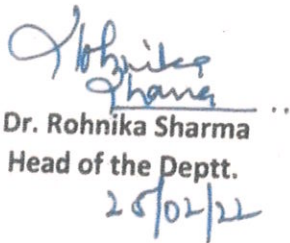 Rohnika
Sharma
Dr. Rohnika Sharma
Head of the Deptt.
25/02/22